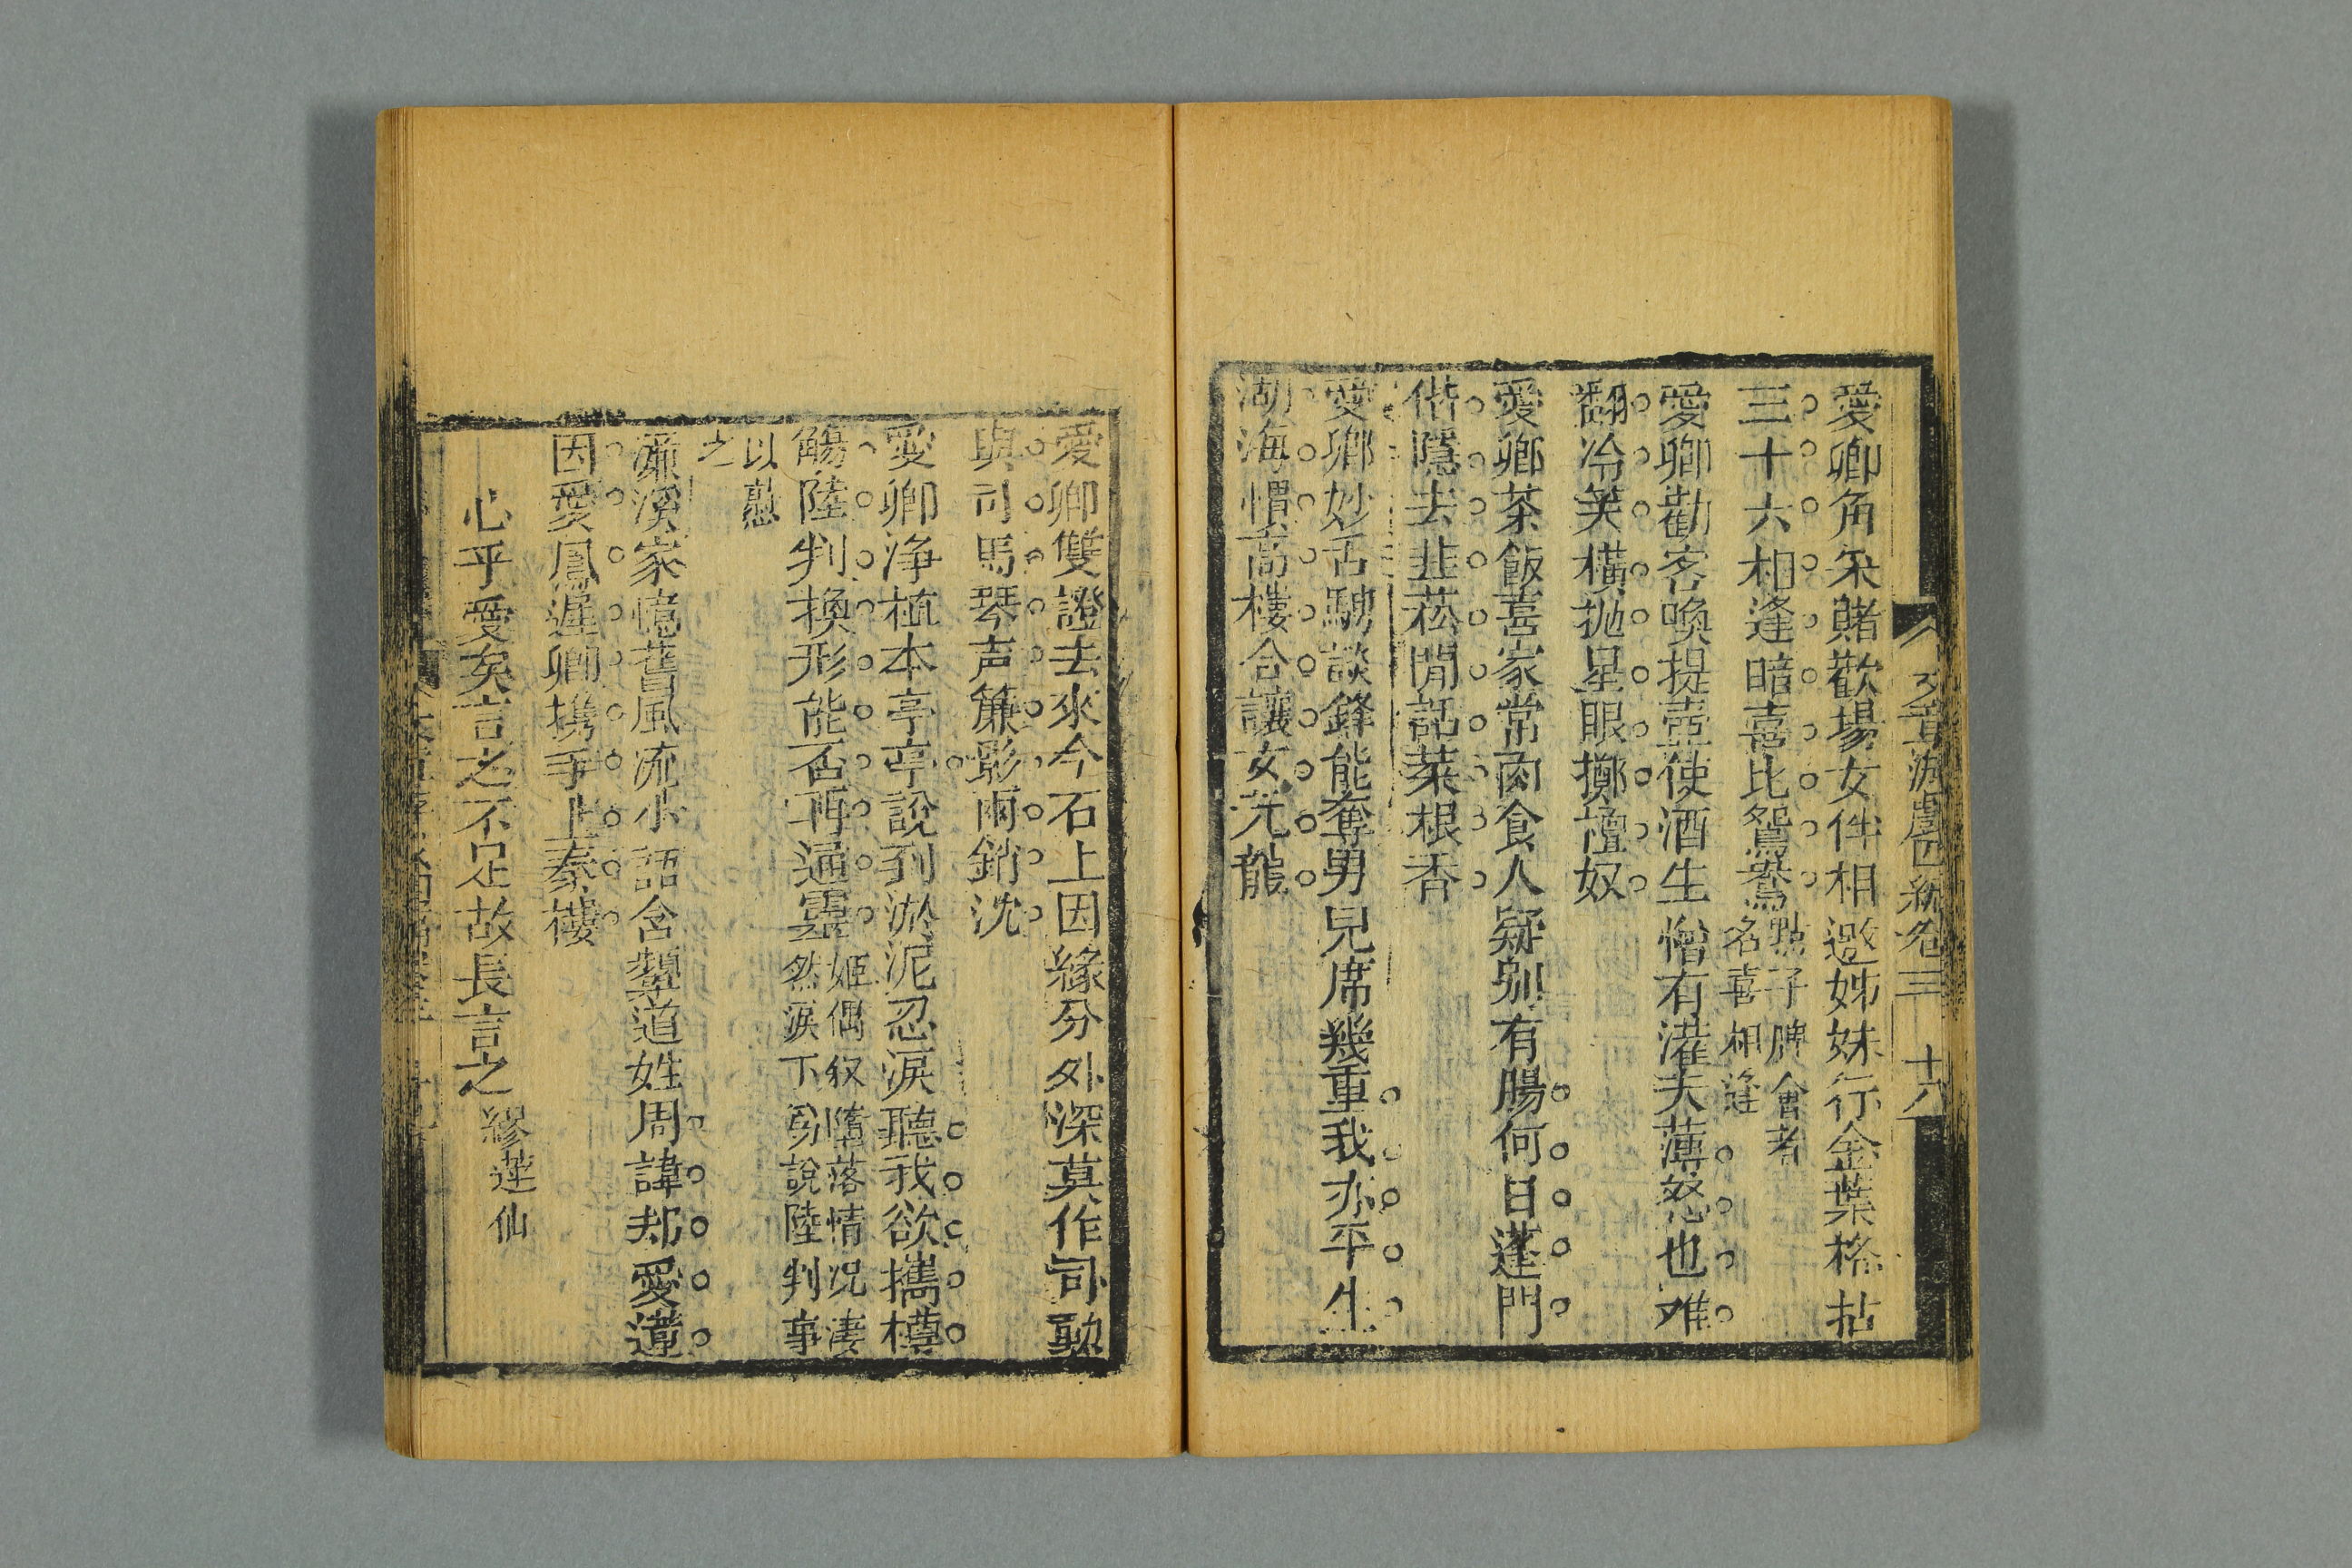 文章游戲四編卷三 十六
愛卿角采賭歡場女伴相邀姊妹行金葉格拈
三十六相逢暗喜比鴛鴦點子牌會者
名喜相逢
愛卿勸客喚提壺使酒生憎有灌夫薄怒也难
翻冷笑橫抛星眼擲檀奴
愛卿茶飯喜家常肉食人疑别有腸何日蓬門
偕隱去韭菘閒話菜根香
愛卿妙舌騁談鋒能奪男兒席幾重我亦平生
湖海慣高樓合讓女元龍
愛卿雙證去來今石上因緣分外深莫作司勳
與司馬琴声簾影兩銷沈
愛卿净植本亭亭說到淤泥忍淚聽我欲攜樽
觴陸判換形能否再通靈姬偶叙墮落情况淒
然淚下因說陸判事
以慰
之
濂溪家憶舊風流小語含顰道姓周諱却愛蓮
因愛鳳遲卿携手上秦樓
心乎愛矣言之不足故長言之 繆蓮仙